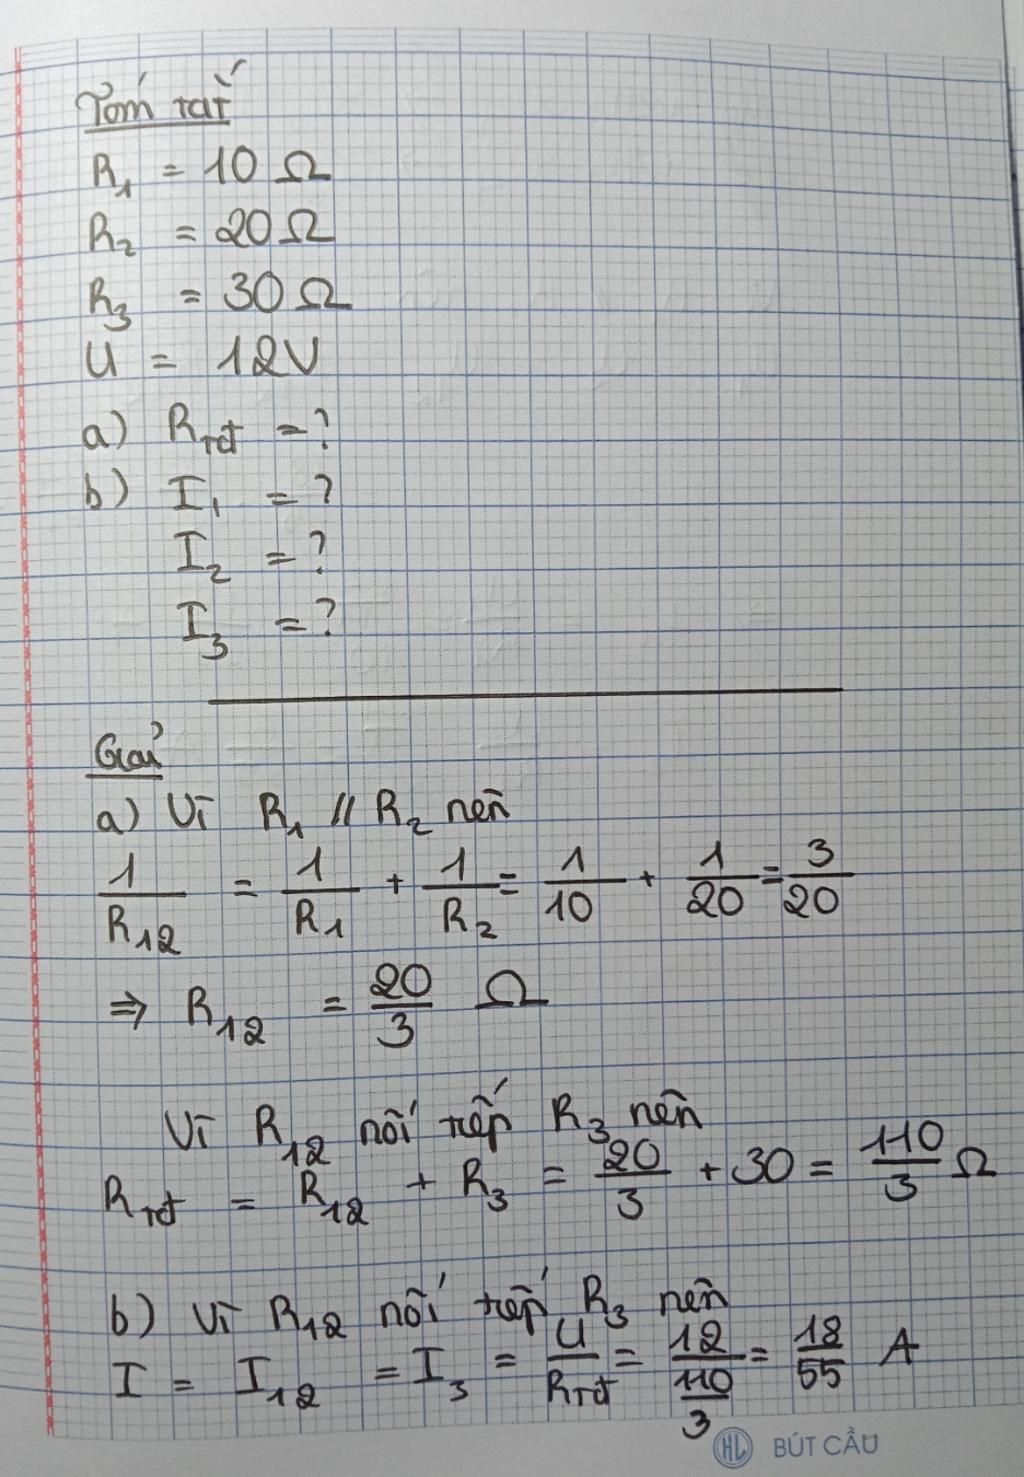 Tóm tắt
R₁ = 10 Ω
R₂ = 20 Ω
R₃ = 30 Ω
U = 12V
a) Rtđ = ?
b) I₁ = ?
I₂ = ?
I₃ = ?
Giải
a) Vì R₁ // R₂ nên
1/R₁₂ = 1/R₁ + 1/R₂ = 1/10 + 1/20 = 3/20
⇒ R₁₂ = 20/3 Ω
Vì R₁₂ nối tiếp R₃ nên
Rtđ = R₁₂ + R₃ = 20/3 + 30 = 110/3 Ω
b) Vì R₁₂ nối tiếp R₃ nên
I = I₁₂ = I₃ = U/Rtđ = 12/(110/3) = 18/55 A
HL BÚT CẦU